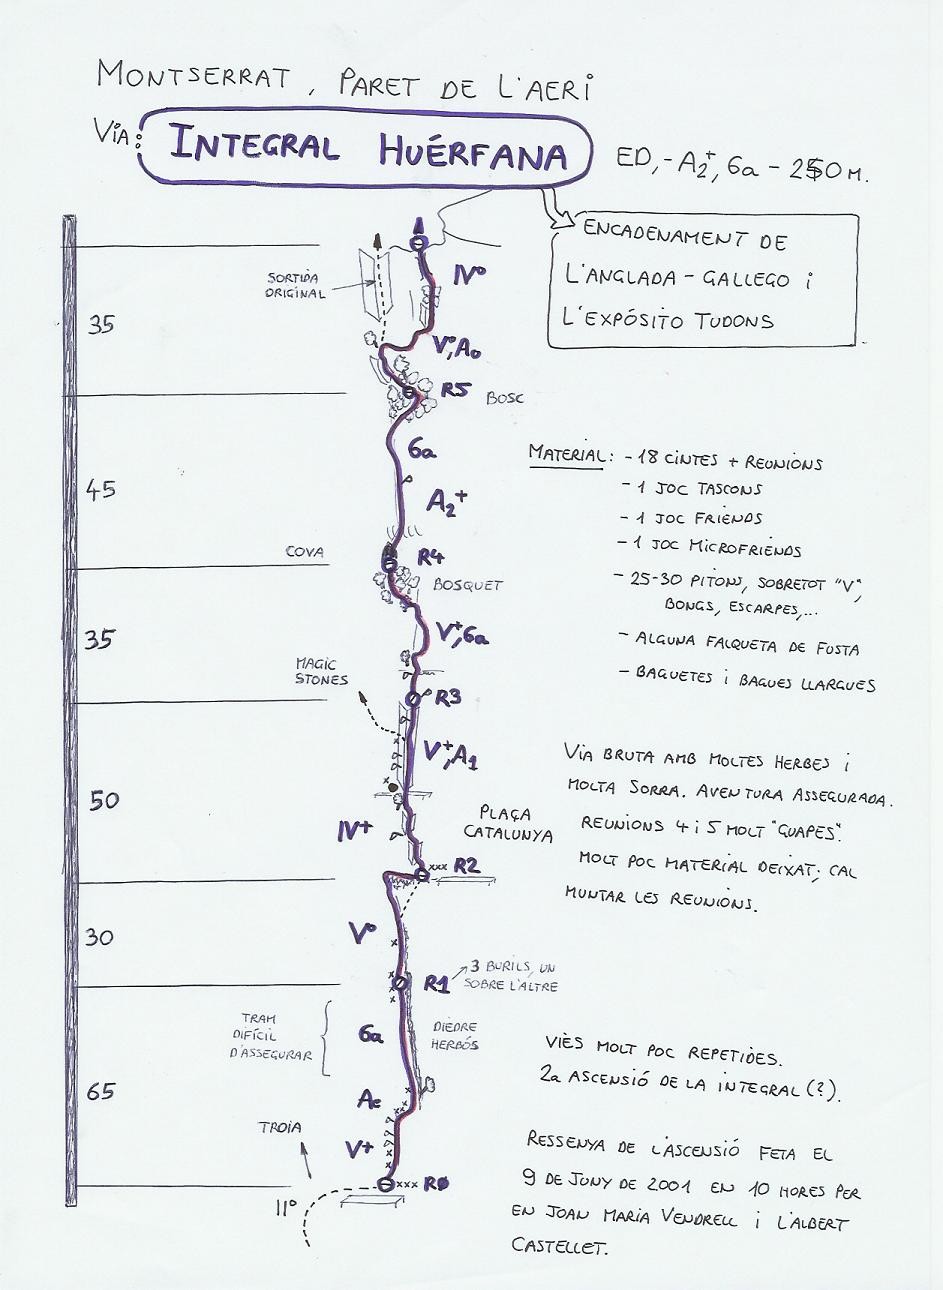 MONTSERRAT, PARET DE L'AERI
VIA: INTEGRAL HUÉRFANA
ED,-A2+, 6a - 250 M.
ENCADENAMENT DE
L'ANGLADA - GALLEGO i
L'EXPÓSITO TUDONS
SORTIDA
ORIGINAL
IVº
35
Vº, A0
R5
BOSC
6a
45
A2+
COVA
R4
BOSQUET
35
V+, 6a
MAGIC
STONES
R3
V+, A1
50
IV+
PLAÇA
CATALUNYA
xxx R2
30
Vº
R1
3 BURILS, UN
SOBRE L'ALTRE
TRAM
DIFÍCIL
D'ASSEGURAR
6a
DIEDRE
HERBÓS
65
Ae
TROIA
V+
xxx RØ
11º
MATERIAL: - 18 CINTES + REUNIONS
- 1 JOC TASCONS
- 1 JOC FRIENDS
- 1 JOC MICROFRIENDS
- 25-30 PITONS, SOBRETOT "V",
BONGS, ESCARPES,...
- ALGUNA FALQUETA DE FUSTA
- BAGUETES i BAGUES LLARGUES
VIA BRUTA AMB MOLTES HERBES i
MOLTA SORRA. AVENTURA ASSEGURADA.
REUNIONS 4 i 5 MOLT "GUAPES".
MOLT POC MATERIAL DEIXAT; CAL
MUNTAR LES REUNIONS.
VIÈS MOLT POC REPETIDES.
2a ASCENSIÓ DE LA INTEGRAL (?).
RESSENYA DE L'ASCENSIÓ FETA EL
9 DE JUNY DE 2001 EN 10 HORES PER
EN JOAN MARIA VENDRELL i L'ALBERT
CASTELLET.